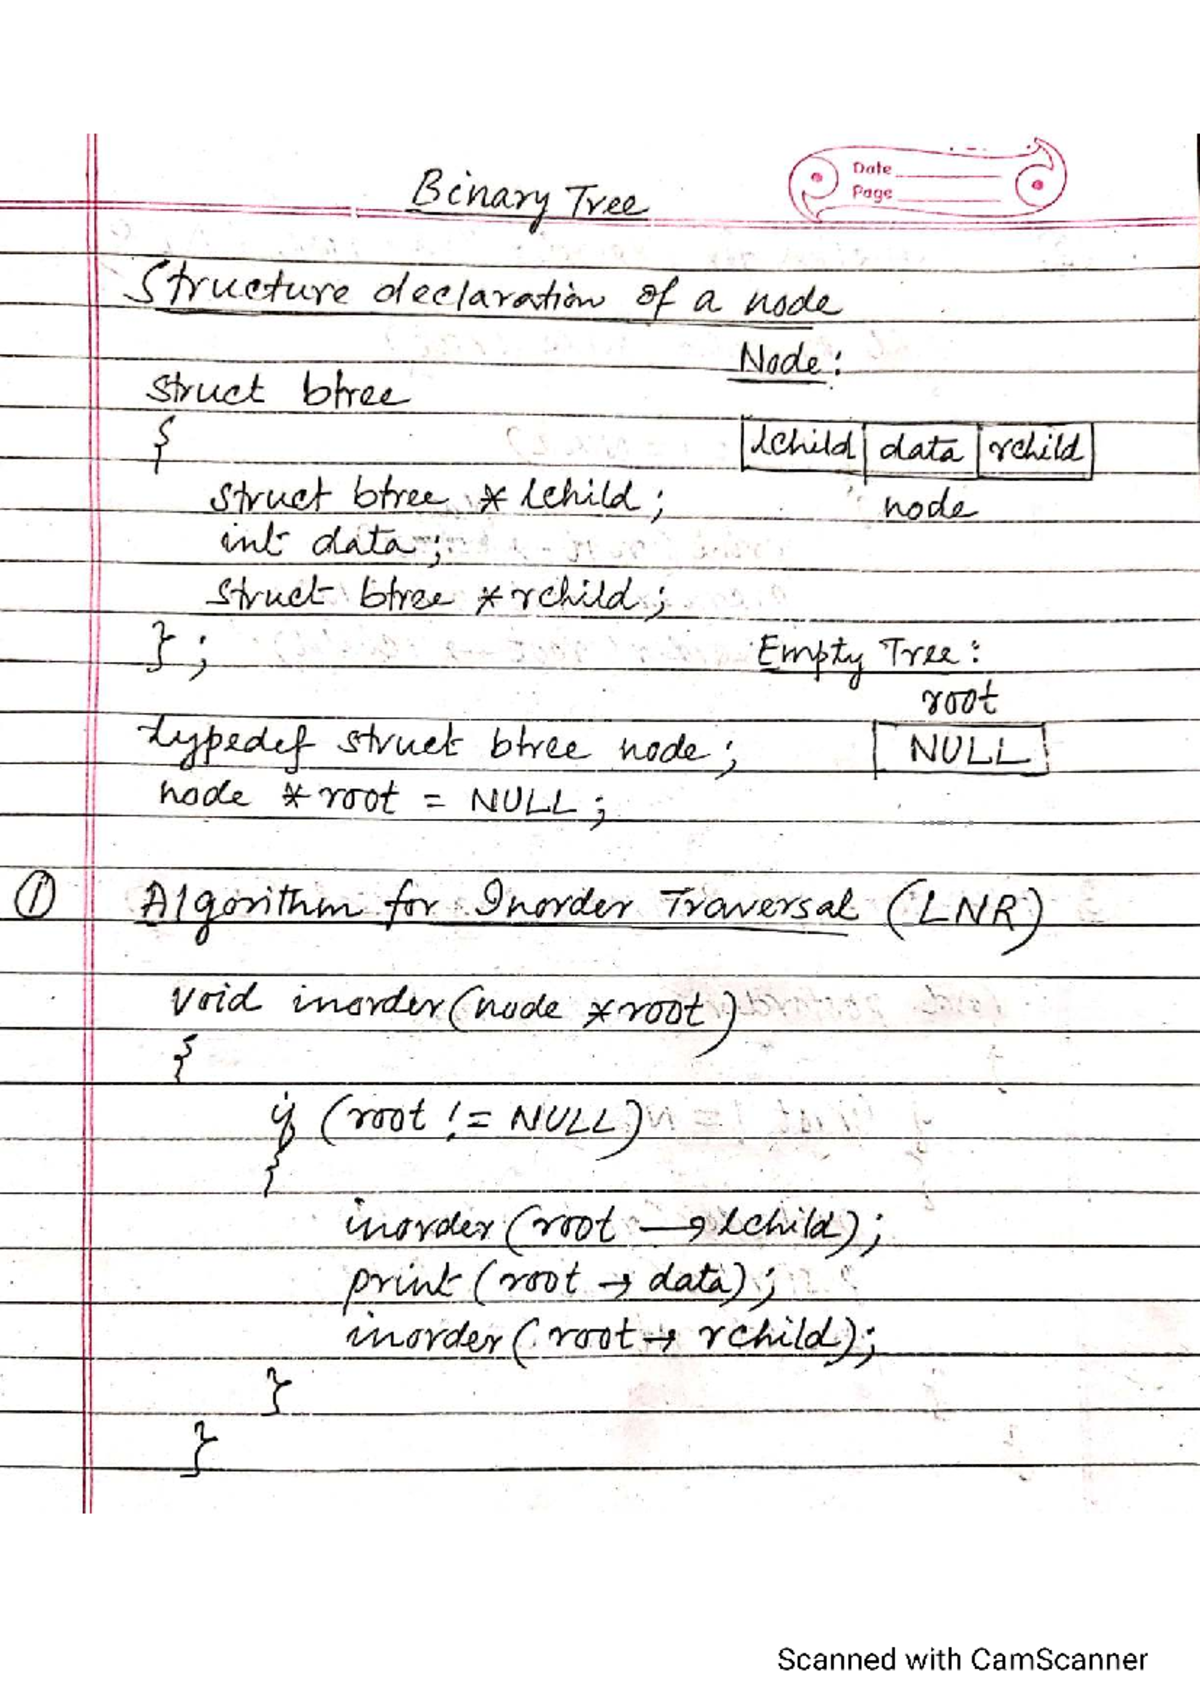 Date
Page
Binary Tree
Structure declaration of a node
Node:
struct btree
{
lchild data rchild
struct btree * lchild;
node
int data;
struct btree * rchild;
};
Empty Tree:
root
typedef struct btree node;
NULL
node * root = NULL;
① Algorithm for Inorder Traversal (LNR)
void inorder(node *root)
{
if (root != NULL)
{
inorder(root → lchild);
print(root → data);
inorder(root → rchild);
}
}
Scanned with CamScanner